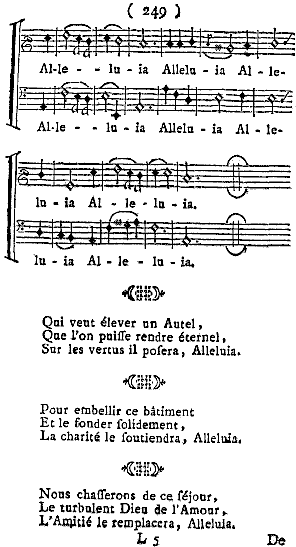 ( 249 )
Al-le - - lu-ia Allelu-ia Al-le-
Al-le - - lu-ia Allelu-ia Al-le-
lu-ia Al-le-lu-ia.
lu-ia Al-le-lu-ia.
Qui veut élever un Autel,
Que l'on puiſſe rendre éternel,
Sur les vertus il poſera, Alleluia.
Pour embellir ce bâtiment
Et le fonder ſolidement,
La charité le ſoutiendra, Alleluia.
Nous chaſſerons de ce ſéjour,
Le turbulent Dieu de l'Amour,
L'Amitié le remplacera, Alleluia.
L 5 De